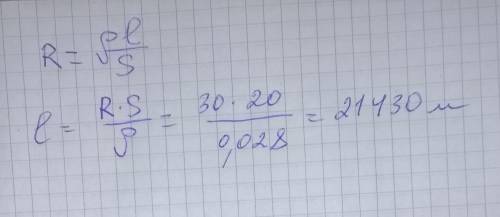 R = ρl/S
l = R·S/ρ = 30·20/0,028 = 21430 м